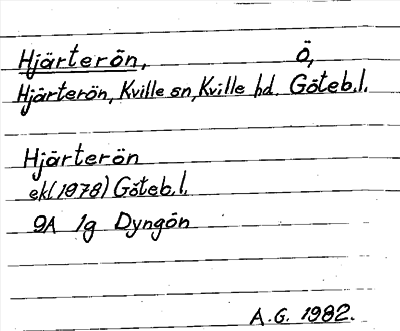 Hjärterön, Ö,
Hjärterön, Kville sn, Kville hd. Göteb.l.
Hjärterön
ek(1978) Göteb.l.
9A 1g Dyngön
A.G. 1982.